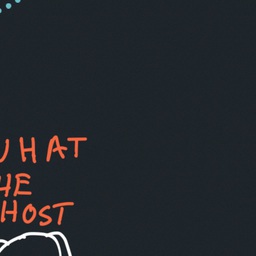 WHAT
HE
HOST